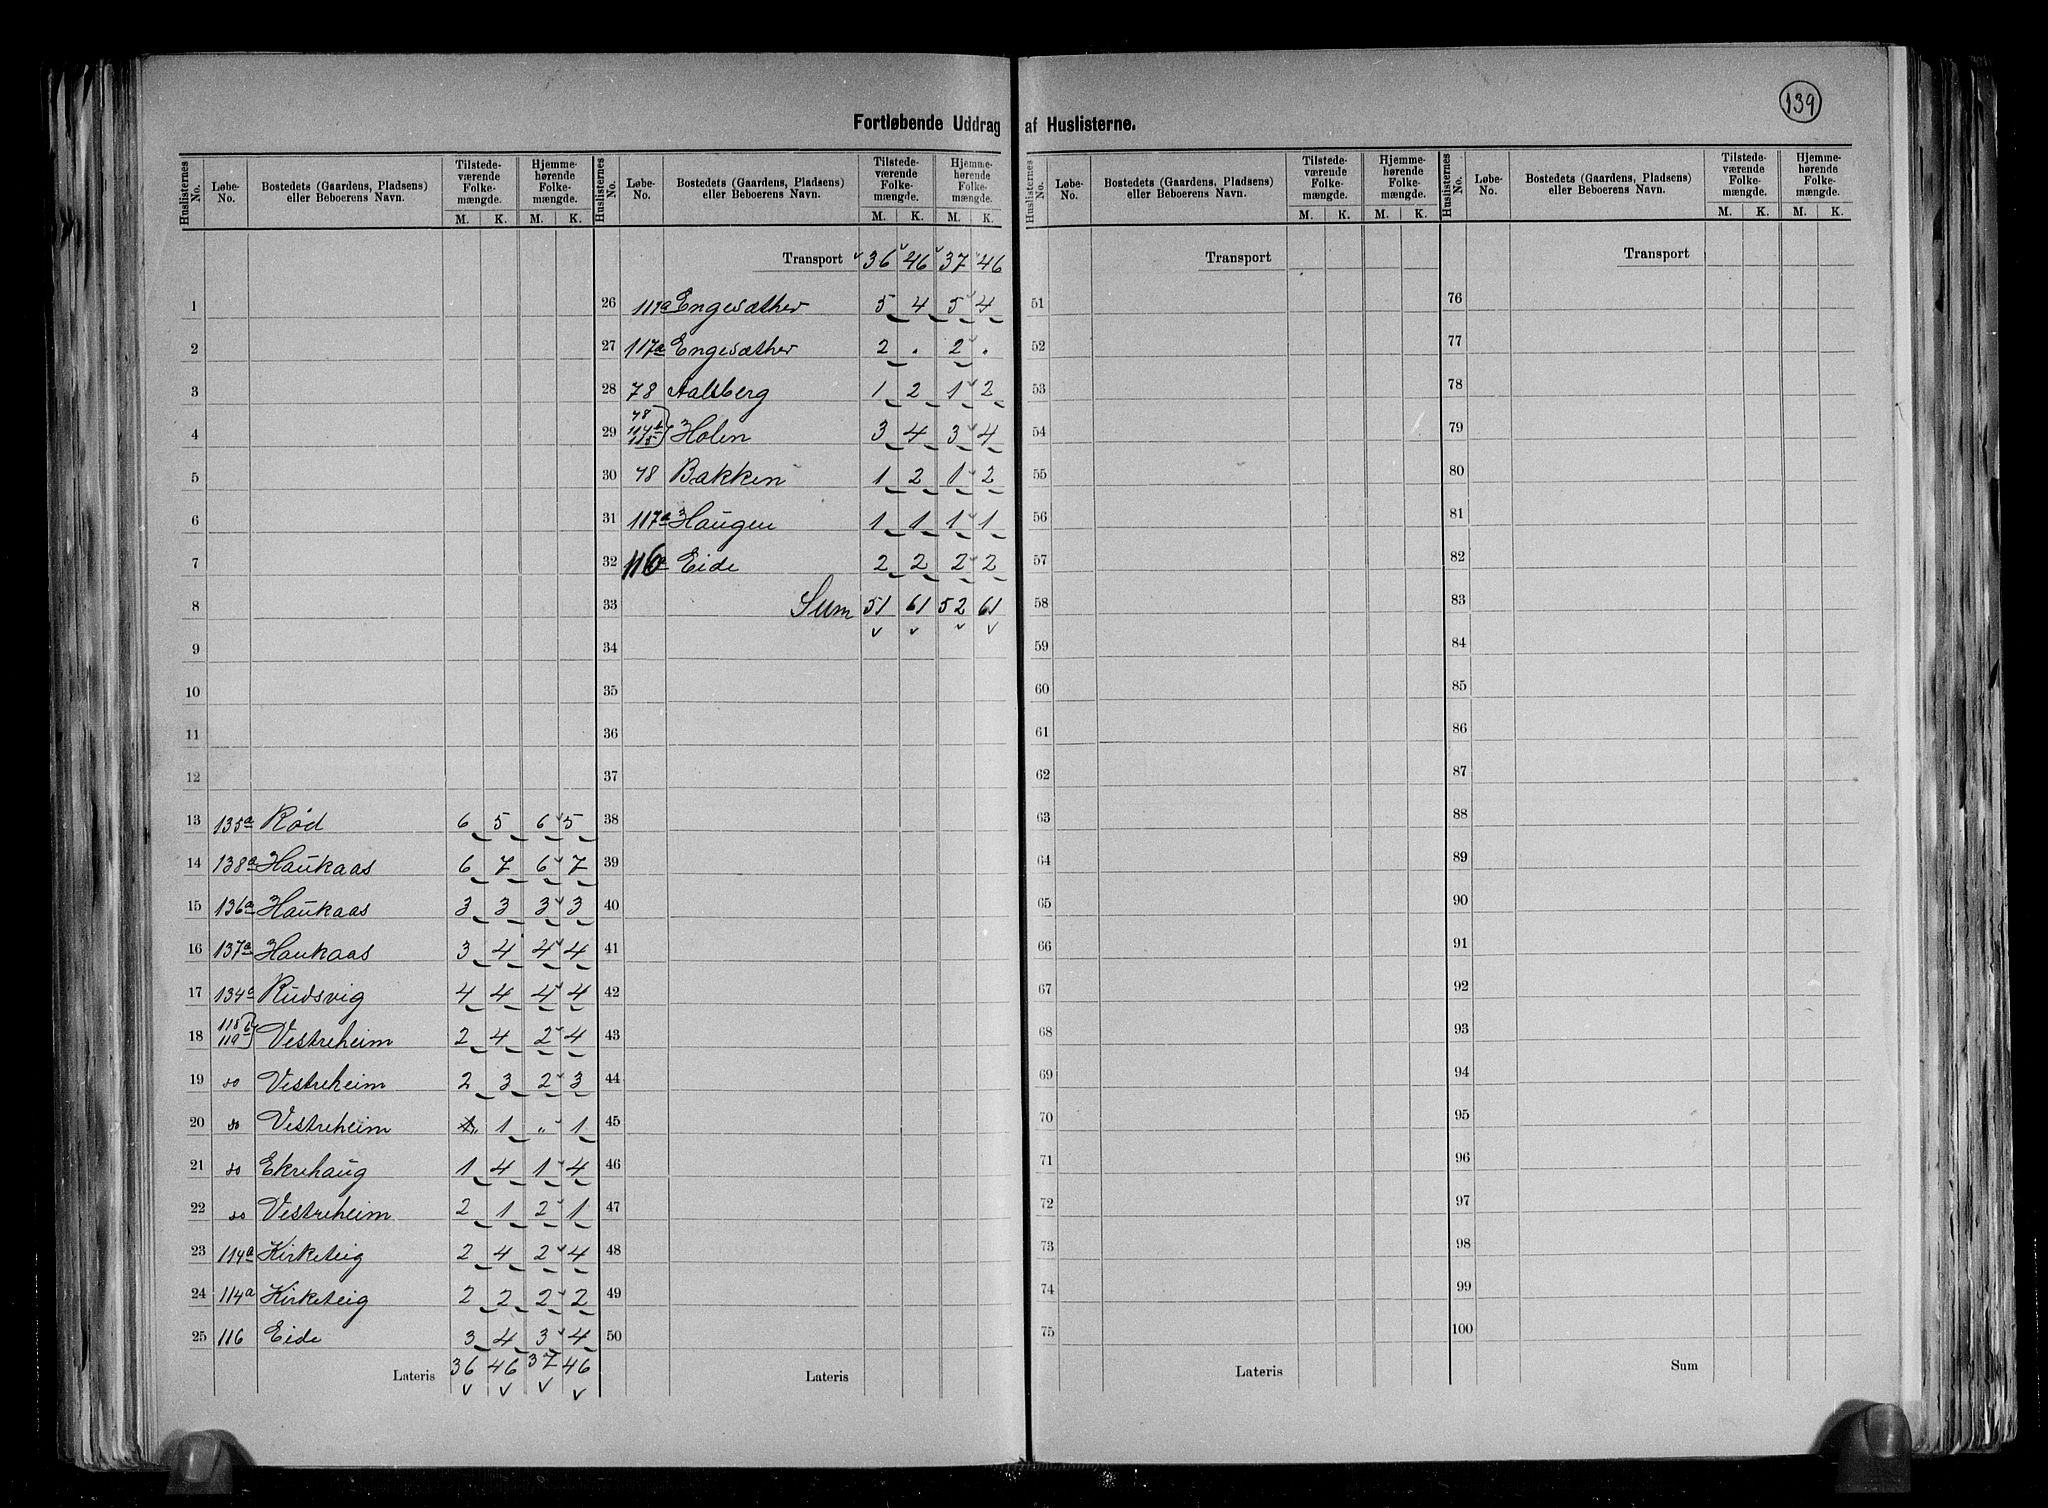 139
Fortløbende Uddrag af Huslisterne.
Huslisternes No. Løbe-No. Bostedets (Gaardens, Pladsens) eller Beboerens Navn. Tilstedeværende Folkemængde. M. K. Hjemmehørende Folkemængde. M. K.
1
2
3
4
5
6
7
8
9
10
11
12
13 135a Rød 6 5 6 5
14 138a Haukaas 6 7 6 7
15 136a Haukaas 3 3 3 3
16 137a Haukaas 3 4 4 4
17 134a Rudsvig 4 4 4 4
18 118b 119 Vestreheim 2 4 2 4
19 do Vestreheim 2 3 2 3
20 do Vestreheim " 1 " 1
21 do Ekrehaug 1 4 1 4
22 do Vestreheim 2 1 2 1
23 114a Kirketeig 2 4 2 4
24 114a Kirketeig 2 2 2 2
25 116 Eide 3 4 3 4
Lateris 36 46 37 46
Huslisternes No. Løbe-No. Bostedets (Gaardens, Pladsens) eller Beboerens Navn. Tilstedeværende Folkemængde. M. K. Hjemmehørende Folkemængde. M. K.
Transport 36 46 37 46
26 117a Engesæther 5 4 5 4
27 117a Engesæther 2 . 2 .
28 78 Aalberg 1 2 1 2
29 78 114b 115 Holen 3 4 3 4
30 78 Bakken 1 2 1 2
31 117a Haugen 1 1 1 1
32 116a Eide 2 2 2 2
33 Sum 51 61 52 61
34
35
36
37
38
39
40
41
42
43
44
45
46
47
48
49
50
Lateris
Huslisternes No. Løbe-No. Bostedets (Gaardens, Pladsens) eller Beboerens Navn. Tilstedeværende Folkemængde. M. K. Hjemmehørende Folkemængde. M. K.
Transport
51
52
53
54
55
56
57
58
59
60
61
62
63
64
65
66
67
68
69
70
71
72
73
74
75
Lateris
Huslisternes No. Løbe-No. Bostedets (Gaardens, Pladsens) eller Beboerens Navn. Tilstedeværende Folkemængde. M. K. Hjemmehørende Folkemængde. M. K.
Transport
76
77
78
79
80
81
82
83
84
85
86
87
88
89
90
91
92
93
94
95
96
97
98
99
100
Sum